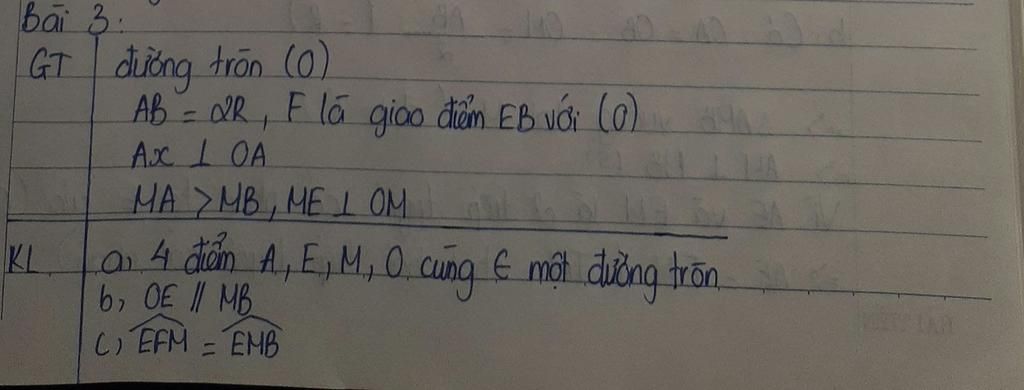 Bài 3:
GT đường tròn (O)
AB = 2R, F là giao điểm EB với (O)
Ax ⊥ OA
MA > MB, ME ⊥ OM
KL a, 4 điểm A, E, M, O cùng ∈ một đường tròn
b, OE // MB
c, \widehat{EFM} = \widehat{EMB}